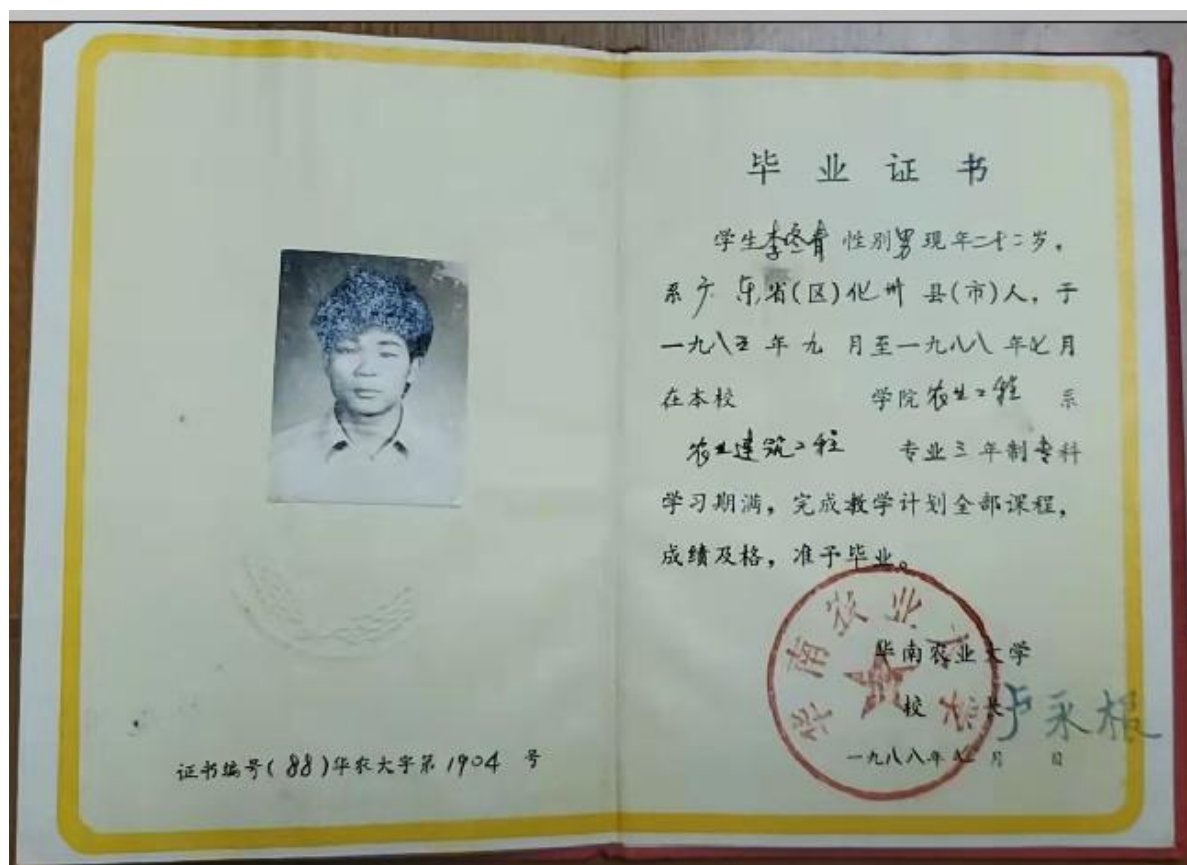 证书编号(88)华农大字第1904号
毕业证书
学生李冬青性别男现年二十二岁，
系广东省(区)化州县(市)人，于
一九八五年九月至一九八八年七月
在本校 学院农业工程系
农业建筑工程 专业三年制专科
学习期满，完成教学计划全部课程，
成绩及格，准予毕业。
华南农业大学
华南农业大学
校长 卢永根
一九八八年七月 日